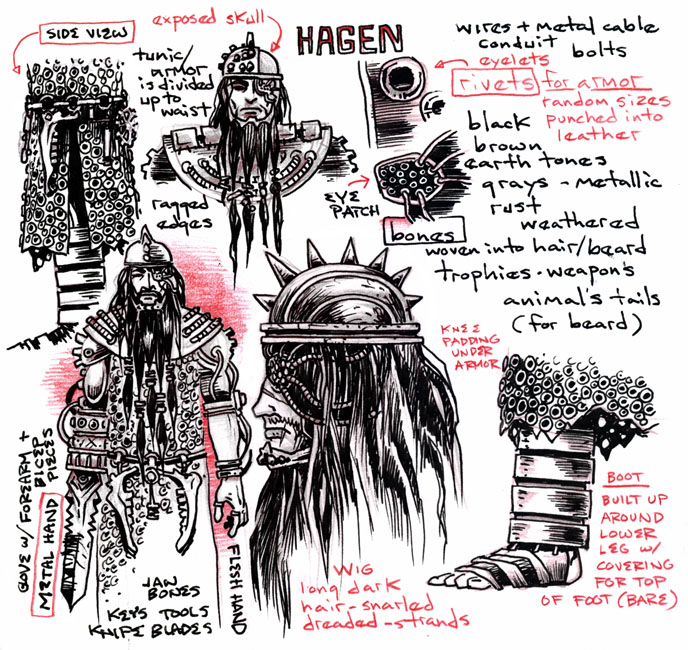 SIDE VIEW
exposed skull
HAGEN
tunic/
armor
is divided
up to
waist
ragged
edges
wires + metal cable
conduit bolts
eyelets
rivets for armor
random sizes
punched into
leather
black
brown
earth tones
grays - metallic
rust
weathered
EYE
PATCH
bones
woven into hair/beard
trophies - weapon's
animal's tails
(for beard)
KNEE
PADDING
UNDER
ARMOR
GOVE W/ FOREARM +
BICEP
PIECES
METAL HAND
JAW
BONES
KEYS TOOLS
KNIFE BLADES
FLESH HAND
WIG
long dark
hair - snarled
dreaded - strands
BOOT
BUILT UP
AROUND
LOWER
LEG W/
COVERING
FOR TOP
OF FOOT (BARE)